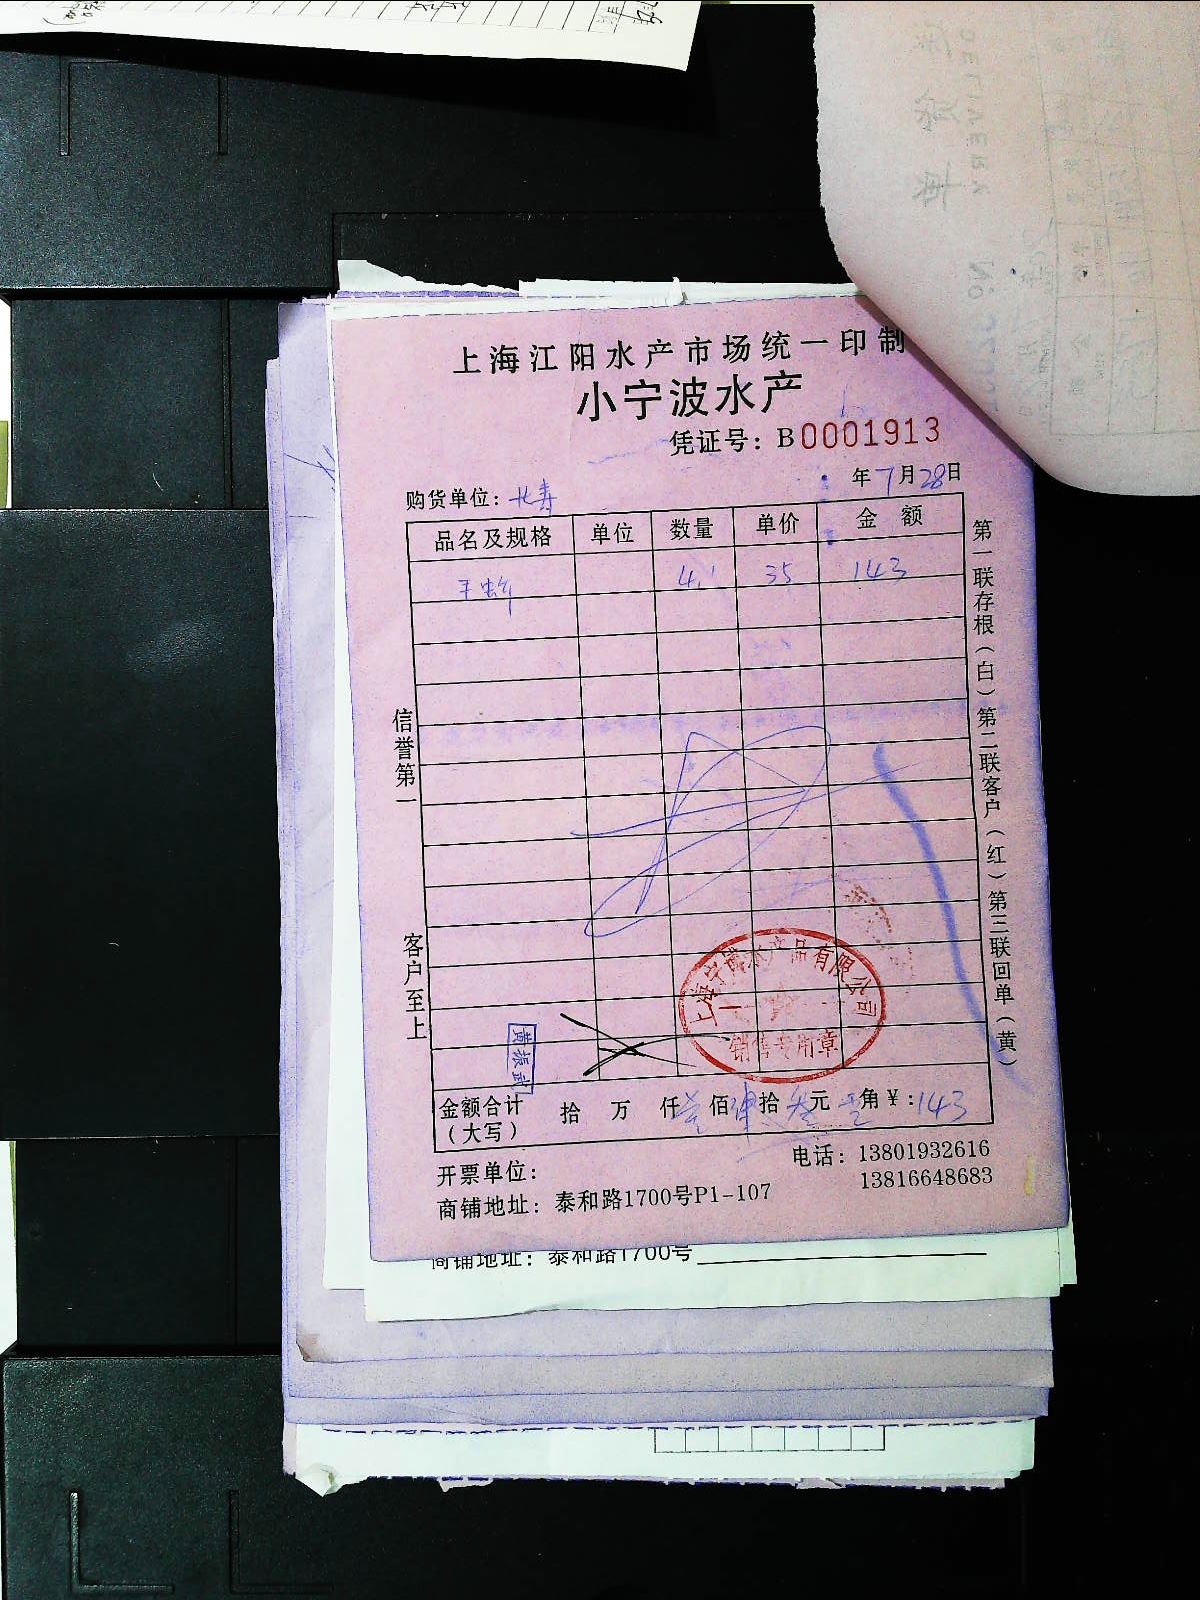 上海江阳水产市场统一印制
小宁波水产
凭证号：B0001913
购货单位：长寿 年7月28日
品名及规格 单位 数量 单价 金额
4.1 35 143
信誉第一 客户至上
第一联存根（白）第二联客户（红）第三联回单（黄）
上海宁波水产品有限公司
销售专用章
黄振武
金额合计（大写） 拾 万 仟壹佰肆拾叁元 角￥:143
开票单位：
电话：13801932616
13816648683
商铺地址：泰和路1700号P1-107
商铺地址：泰和路1700号